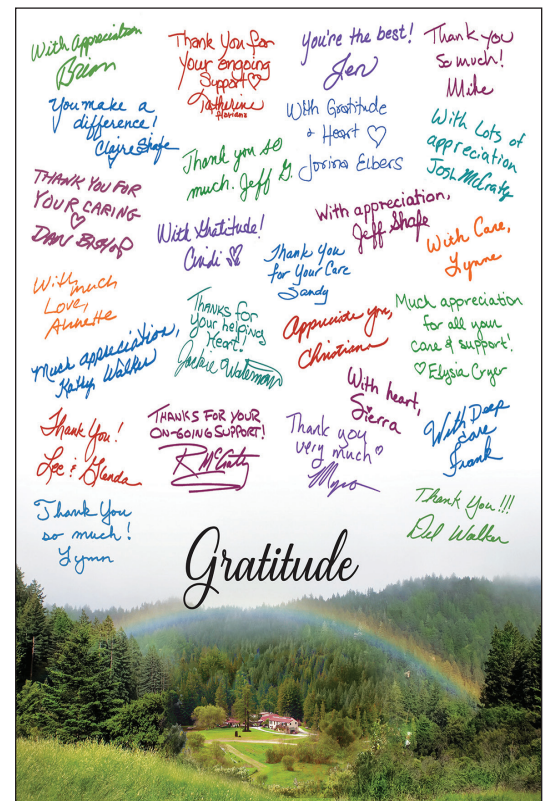 With Appreciation
Brian
Thank You for
your ongoing
Support♡
Katherine
Floriane
you're the best!
Jen
Thank you
so much!
Mike
You make a
difference!
Claire Shafe
With Gratitude
& Heart ♡
Josina Elbers
With Lots of
appreciation
Josh McCraty
Thank you so
much. Jeff G.
THANK YOU FOR
YOUR CARING
♡
DAN BISHOP
With appreciation,
Jeff Shafe
With Gratitude!
Cindi
With Care,
Lynne
Thank You
for Your Care
Sandy
With much
Love,
Annette
Thanks for
your helping
Heart!
Jackie Waterman
Appreciate you,
Christiana
Much appreciation
for all your
care & support!
♡ Elysia Cryer
Much appreciation,
Kathy Walker
With heart,
Sierra
Thank You!
Lee & Glenda
THANKS FOR YOUR
ON-GOING SUPPORT!
R McCraty
Thank you
very much♡
With Deep
Care
Frank
Thank You
so much!
Lynn
Thank You!!!
Del Walker
Gratitude